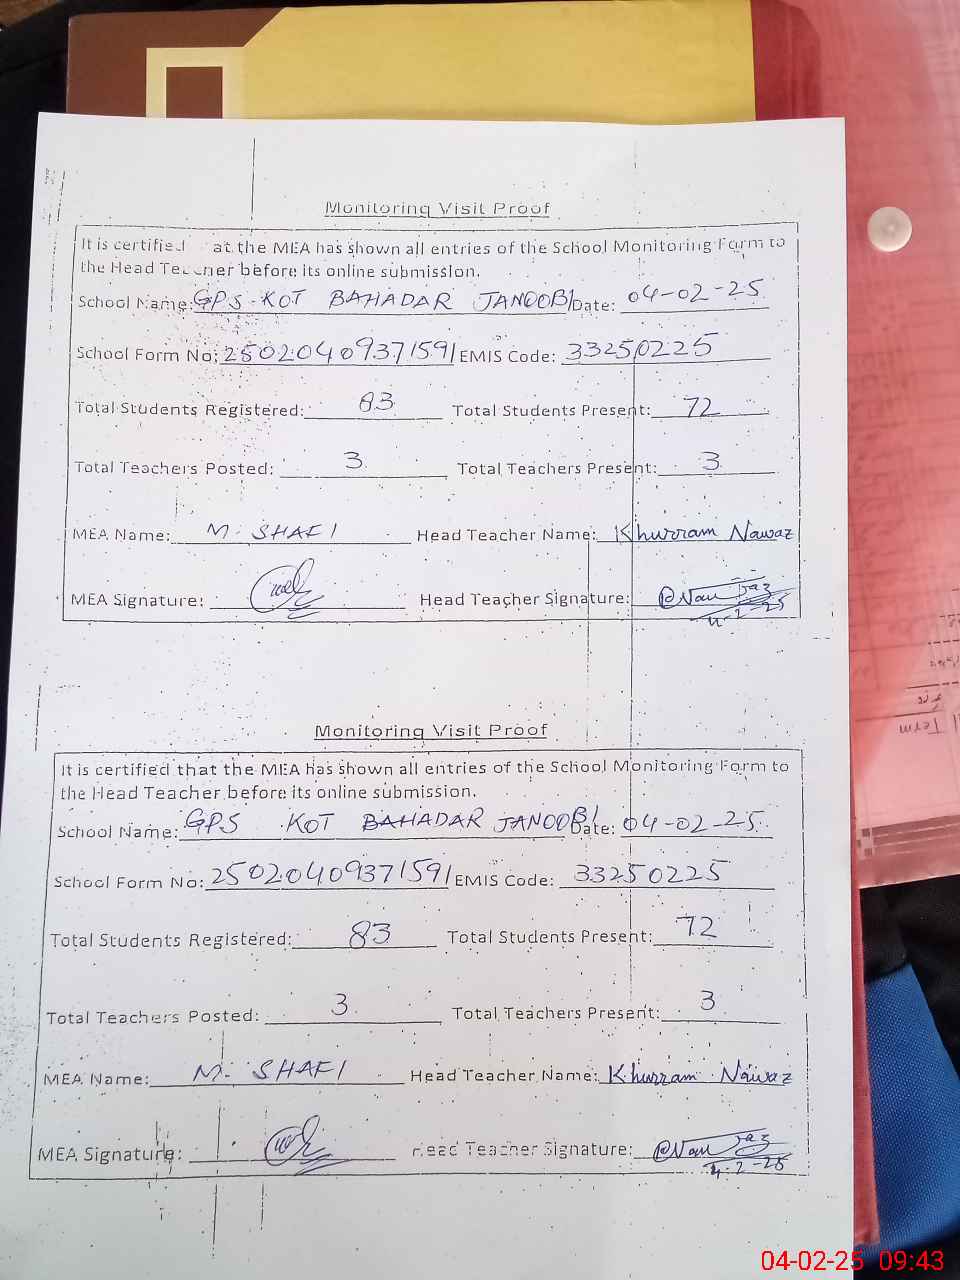 Monitoring Visit Proof
It is certified at the MEA has shown all entries of the School Monitoring Form to
the Head Teacher before its online submission.
School Name: GPS KOT BAHADAR JANOOBI Date: 04-02-25
School Form No: 25020409371591 EMIS Code: 33250225
Total Students Registered: 83 Total Students Present: 72
Total Teachers Posted: 3 Total Teachers Present: 3
MEA Name: M. SHAFI Head Teacher Name: Khurram Nawaz
MEA Signature: Head Teacher Signature:
4-2-25
Monitoring Visit Proof
It is certified that the MEA has shown all entries of the School Monitoring Form to
the Head Teacher before its online submission.
School Name: GPS KOT BAHADAR JANOOBI Date: 04-02-25
School Form No: 25020409371591 EMIS Code: 33250225
Total Students Registered: 83 Total Students Present: 72
Total Teachers Posted: 3 Total Teachers Present: 3
MEA Name: M. SHAFI Head Teacher Name: Khurram Nawaz
MEA Signature: Head Teacher Signature:
4-2-25
Term
04-02-25 09:43